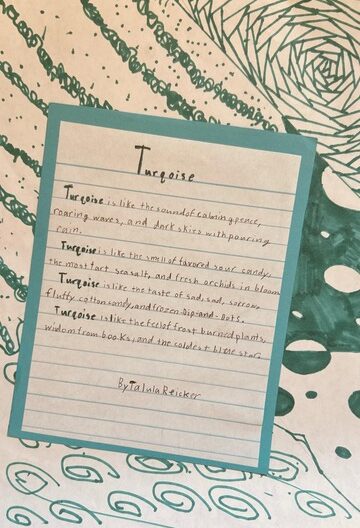 Turqoise
Turqoise is like the sound of calming pence,
roaring waves, and dark skies with pouring
rain.
Turqoise is like the smell of favored sour candy,
the most tart sea salt, and fresh orchids in bloom
Turqoise is like the taste of sad, sad, sorrow,
fluffy cotton candy, and frozen Dip-and-Dots.
Turqoise is like the feel of frost burned plants,
wisdom from books, and the coldest blue star.
By Talula Reicker